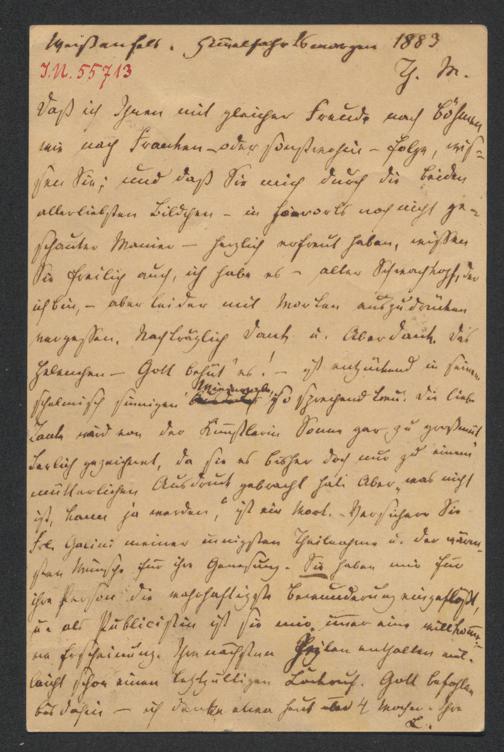 Weißenfels. Himelfahrtsmorgen 1883
I.N. 55713
Th. M.
Daß ich Ihnen mit gleicher Freude nach Böhmen
wie nach Franken – oder sonstwohin – folge, wis-
sen Sie; und daß Sie mich durch die beiden
allerliebsten Bildchen – in hierorts noch nicht ge-
schauter Manier – herzlich erfreut haben, wissen
Sie freilich auch, ich habe es – alter Schwachkopf, der
ich bin, – aber leider mit Worten auszudrücken
vergessen. Nachträglich Dank u. Aberdank. Das
Helenchen – Gott behüt' es! – ist entzückend in seiner
schelmisch sinnigen Miene so sprechend treu. Die liebe
Tante wird von der Künstlerin Sonne gar zu großmüt
terlich gezeichnet, da sie es bisher doch nur zu einem
mütterlichen Ausdruck gebracht hat. Aber „was nicht
ist, kann ja werden," ist ein Wort. – Versichern Sie
Frl. meiner innigsten Theilnahme u. der wärm-
sten Wünsche für ihre Genesung. – Sie haben mir für
ihre Person die wahrhaftigste Bewunderung eingeflößt,
u. als Publicistin ist sie mir immer eine willkomme-
ne Erscheinung. Ihre nächsten Zeilen enthalten viel-
leicht schon einen Gott befohlen
bis dahin – ich denke etwa heut über 4 Wochen. Ihre
L.